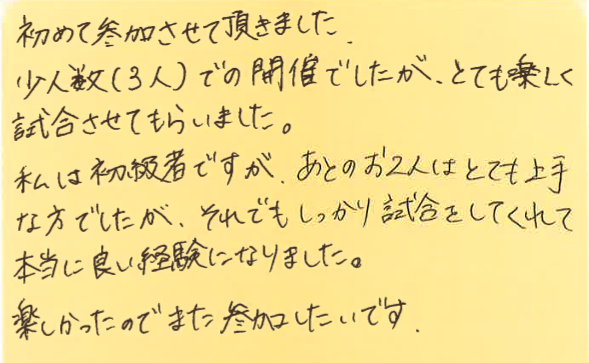 初めて参加させて頂きました.
少人数(3人)での開催でしたが、とても楽しく
試合させてもらいました。
私は初級者ですが、あとのお2人はとても上手
な方でしたが、それでもしっかり試合をしてくれて
本当に良い経験になりました。
楽しかったのでまた参加したいです.